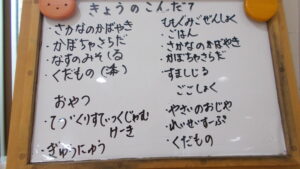 きょうのこんだて
さかなのかばやき
かぼちゃさらだ
なすのみそしる
くだもの
おやつ
てづくりすてぃっくじゃむ
けーき
・ぎゅうにゅう
・ごはん
さかなのかばやき
かぼちゃさらだ
すましじる
ごごしょく
・やさいのおじや
・くだもの